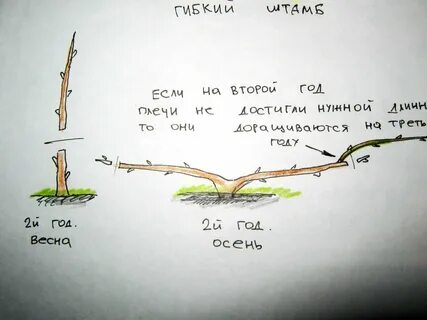 ГИБКИЙ ШТАМБ
ЕСЛИ НА ВТОРОЙ ГОД
ПЛЕЧИ НЕ ДОСТИГЛИ НУЖНОЙ ДЛИНН
ТО ОНИ ДОРАЩИВАЮТСЯ НА ТРЕТЬ
ГОДУ
2й ГОД.
ВЕСНА
2й ГОД.
ОСЕНЬ